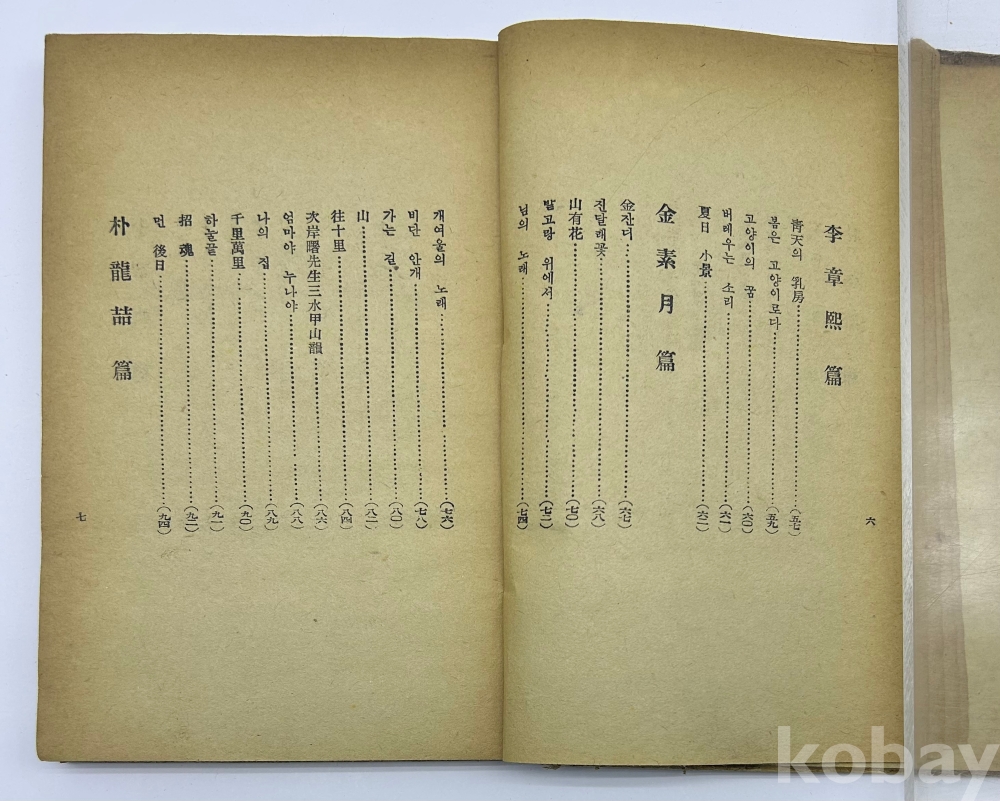 李章熙篇
靑天의 乳房……(五七)
봄은 고양이로다……(五九)
고양이의 꿈……(六〇)
버레우는 소리……(六一)
夏日 小景……(六二)
金素月篇
金잔듸……(六七)
진달래꽃……(六八)
山有花……(七〇)
밭고랑 위에서……(七二)
님의 노래……(七四)
六
개여울의 노래……(七六)
비단 안개……(七八)
가는 길……(八〇)
山……(八二)
往十里……(八四)
次岸曙先生三水甲山韻……(八六)
엄마야 누나야……(八八)
나의 집……(八九)
千里萬里……(九〇)
하눌끝……(九一)
招魂……(九二)
먼 後日……(九四)
朴龍喆篇
七
kobay